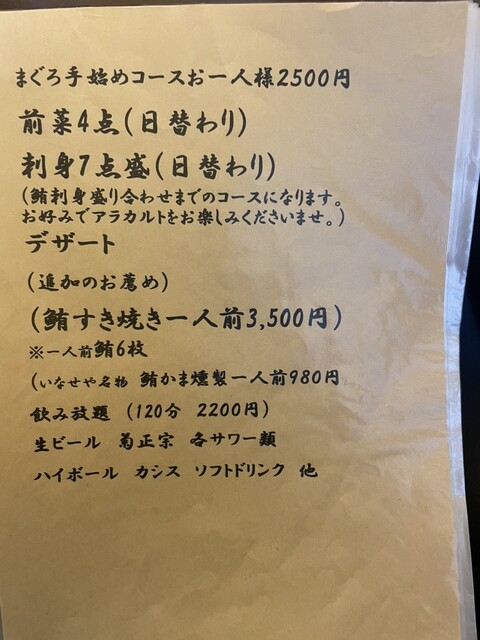 まぐろ手始めコースお一人様2500円
前菜4点(日替わり)
刺身7点盛(日替わり)
(鮪刺身盛り合わせまでのコースになります。
お好みでアラカルトをお楽しみくださいませ。)
デザート
(追加のお薦め)
(鮪すき焼き一人前3,500円)
※一人前鮪6枚
(いなせや名物 鮪かま燻製一人前980円
飲み放題 (120分 2200円)
生ビール 菊正宗 各サワー類
ハイボール カシス ソフトドリンク 他